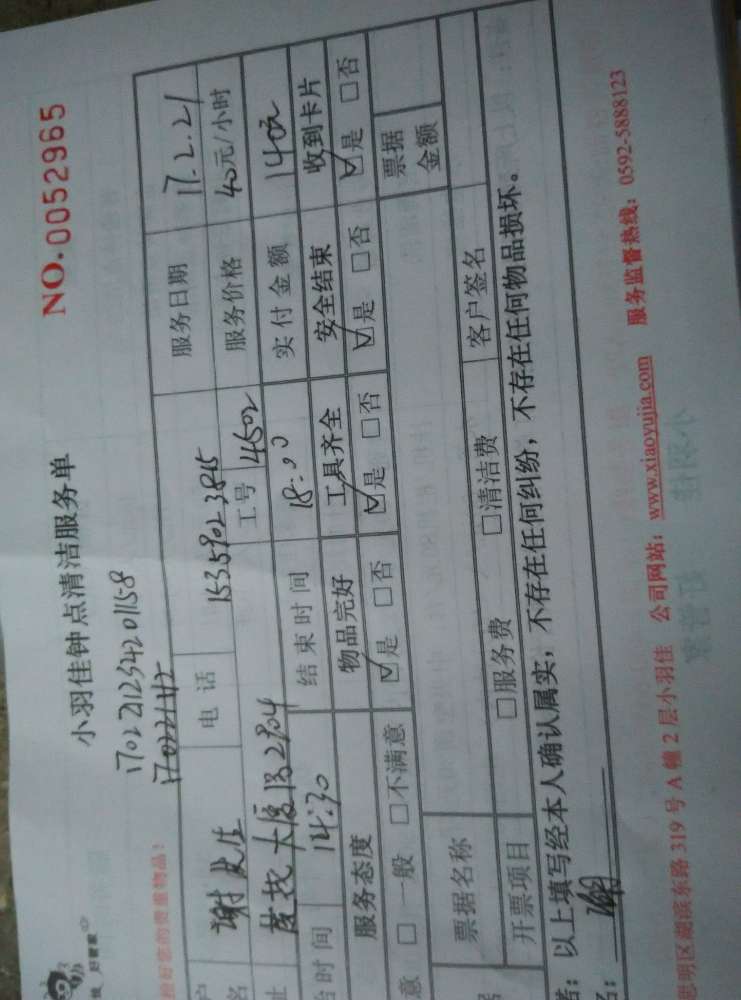 NO.0052965
小羽佳钟点清洁服务单
1702212342 01158
好管家
管好您的贵重物品!
户名 谢先生 电话 15359023815 服务日期 17.2.21
址 大厦B2804 工号 4502 服务价格 40元/小时
始时间 14:30 结束时间 18:00 实付金额 140元
服务态度 物品完好 工具齐全 安全结束 收到卡片
意 □一般 □不满意 ☑是 □否 ☑是 □否 ☑是 □否 ☑是 □否
票据名称 票据金额
开票项目 □服务费 □清洁费 客户签名
者:以上填写经本人确认属实,不存在任何纠纷,不存在任何物品损坏。
名:
思明区湖滨东路 319 号 A 幢 2 层小羽佳 公司网站:www.xiaoyujia.com 服务监督热线:0592-5888123